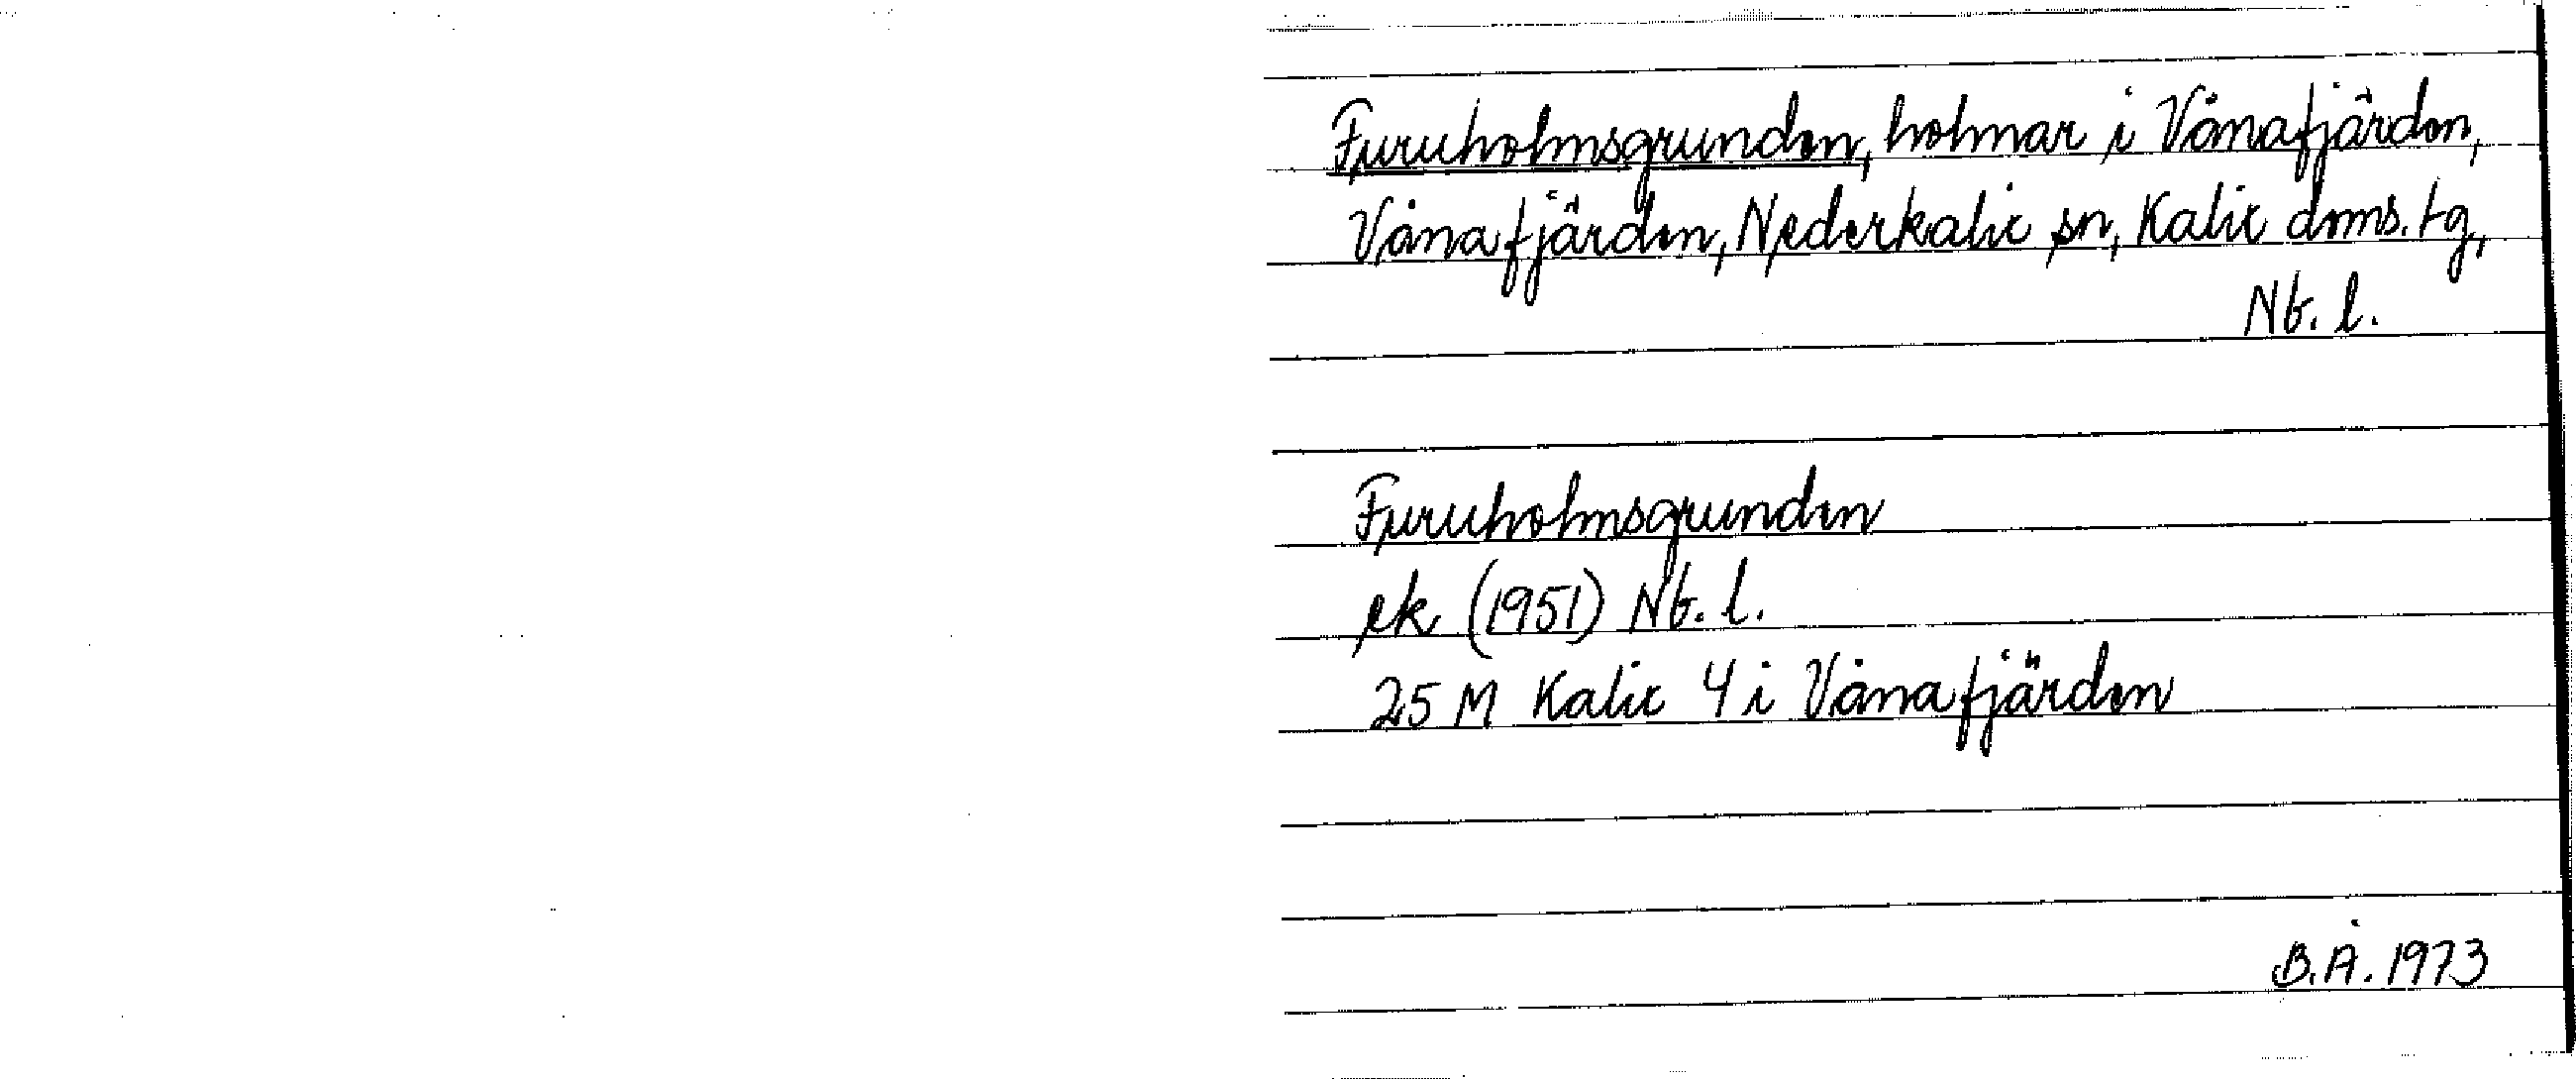 Furuholmsgrunden, holmar i Vånafjärden,
Vånafjärden, Nederkalix sn, Kalix doms. tg,
Nb. l.
Furuholmsgrunden
ek (1951) Nb. l.
25 M Kalix 4 i Vånafjärden
B.Å. 1973